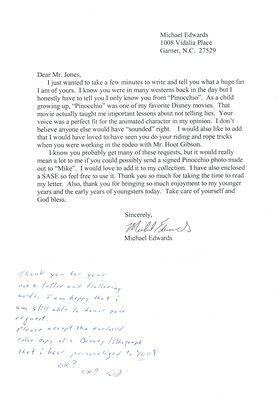 Michael Edwards
1008 Vidalia Place
Garner, N.C. 27529
Dear Mr. Jones,
I just wanted to take a few minutes to write and tell you what a huge fan
I am of yours. I know you were in many westerns back in the day but I
honestly have to tell you I only know you from "Pinocchio". As a child
growing up, "Pinocchio" was one of my favorite Disney movies. That
movie actually taught me important lessons about not telling lies. Your
voice was a perfect fit for the animated character in my opinion. I don't
believe anyone else would have "sounded" right. I would also like to add
that I would have loved to have seen your riding and rope tricks
when you were working in the rodeo with Mr. Hoot Gibson.
I know you probably get many of these requests, but it would really
mean a lot to me if you could possibly send a signed Pinocchio photo made
out to "Mike". I would love to add it to my collection. I have also enclosed
a SASE so feel free to use it. Thank you so much for taking the time to read
my letter. Also, thank you for bringing so much enjoyment to my younger
years and the early years of youngsters today. Take care of yourself and
God bless.
Sincerely,
Michael Edwards
Michael Edwards
Thank you for your
nice letter and flattering
words. I am happy that i
am still able to honor your
request.
Please accept the enclosed
color copy of a Disney lithograph
that i have personalized to YOU!
OK?
OK?